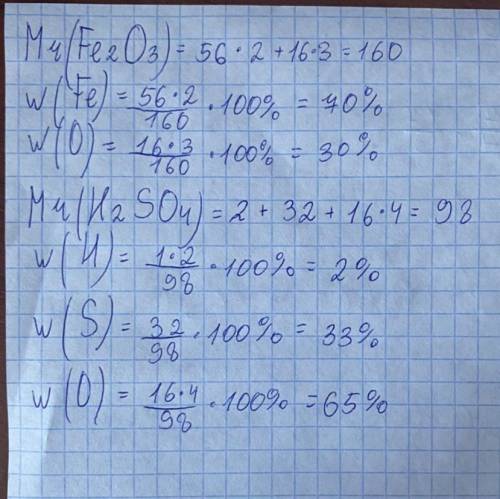 Mч(Fe2O3) = 56·2 + 16·3 = 160
w(Fe) = 56·2/160 · 100% = 70%
w(O) = 16·3/160 · 100% = 30%
Mч(H2SO4) = 2 + 32 + 16·4 = 98
w(H) = 1·2/98 · 100% = 2%
w(S) = 32/98 · 100% = 33%
w(O) = 16·4/98 · 100% = 65%